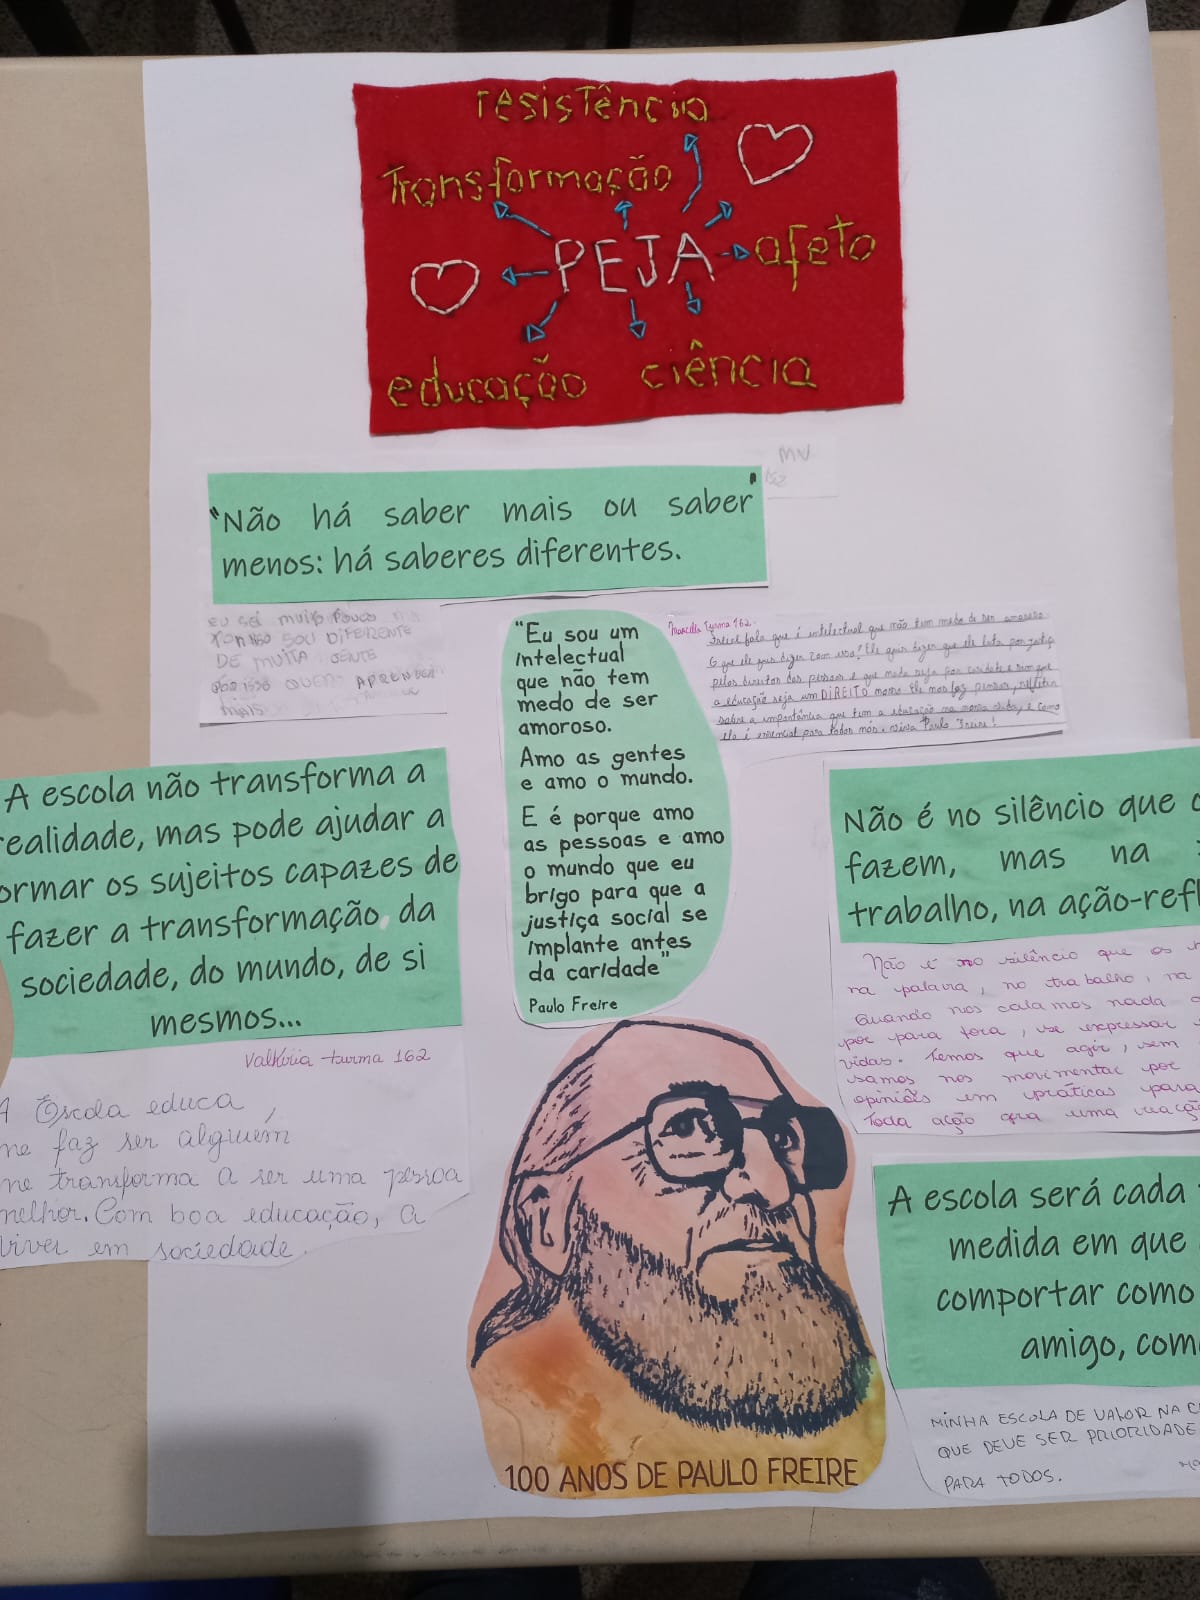 resistência
Transformação
PEJA
afeto
educação
ciência
MV
152
"Não há saber mais ou saber"
menos: há saberes diferentes.
EU SEI MUITO POUCO
POR ISSO SOU DIFERENTE
DE MUITA GENTE
POR ISSO QUERO APRENDER
MAIS
"Eu sou um
intelectual
que não tem
medo de ser
amoroso.
Amo as gentes
e amo o mundo.
E é porque amo
as pessoas e amo
o mundo que eu
brigo para que a
justiça social se
implante antes
da caridade"
Paulo Freire
Marcella Turma 162.
Freire fala que é intelectual que não tem medo de ser amoroso
O que ele quis dizer com isso? Ele quis dizer que ele luta por justiça
pelos direitos das pessoas e que nada seja por caridade e sim que
a educação seja um DIREITO nosso. Ele nos faz pensar, refletir
sobre a importância que tem a educação na nossa vida, e como
ela é essencial para todos nós. Viva Paulo Freire!
A escola não transforma a
realidade, mas pode ajudar a
ormar os sujeitos capazes de
fazer a transformação, da
sociedade, do mundo, de si
mesmos...
Valkíria turma 162
A Escola educa,
me faz ser alguém
me transforma a ser uma pessoa
melhor. Com boa educação, a
viver em sociedade.
Não é no silêncio que o
fazem, mas na
trabalho, na ação-refl
Não é no silêncio que os h
na palavra, no trabalho, na
Quando nos calamos nada
pôr para fora, se expressar
vidas. Temos que agir, sem
samos nos movimentar por
opiniões em práticas para
Toda ação gera uma reação
A escola será cada
medida em que
comportar como
amigo, com
MINHA ESCOLA DE VALOR NA C
QUE DEVE SER PRIORIDADE
PARA TODOS.
100 ANOS DE PAULO FREIRE